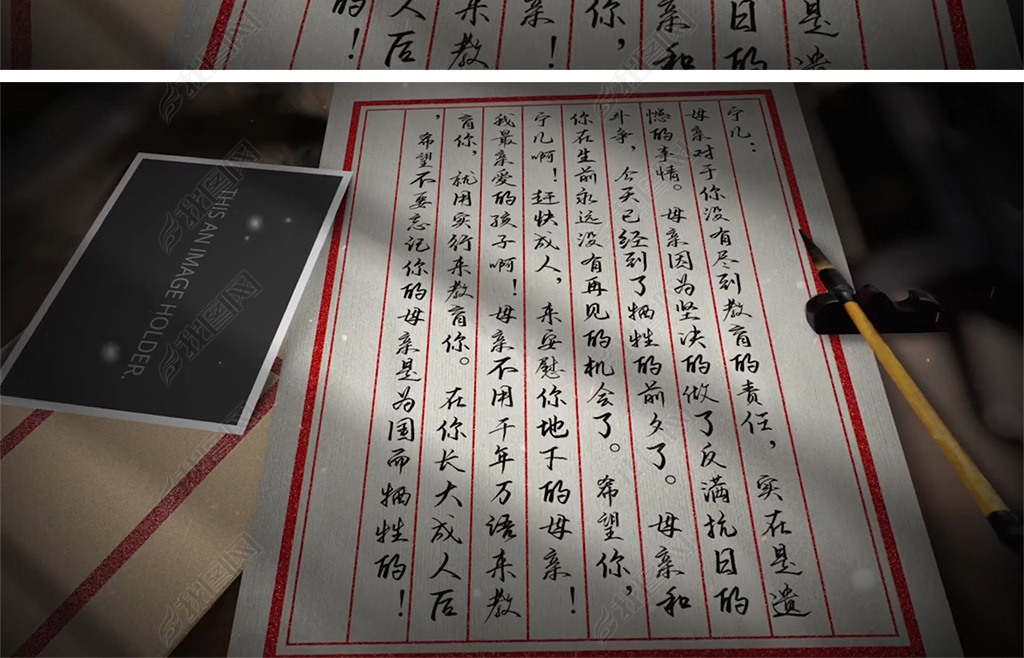 是遗
日的
亲和
你，
亲！
来教
人后
的！
宁儿：
母亲对于你没有尽到教育的责任，实在是遗
憾的事情。母亲因为坚决的做了反满抗日的
斗争，今天已经到了牺牲的前夕了。母亲和
你在生前永远没有再见的机会了。希望你，
宁儿啊！赶快成人，来安慰你地下的母亲！
我最亲爱的孩子啊！母亲不用千年万语来教
育你，就用实行来教育你。在你长大成人后
，希望不要忘记你的母亲是为国而牺牲的！
THIS AN IMAGE HOLDER.